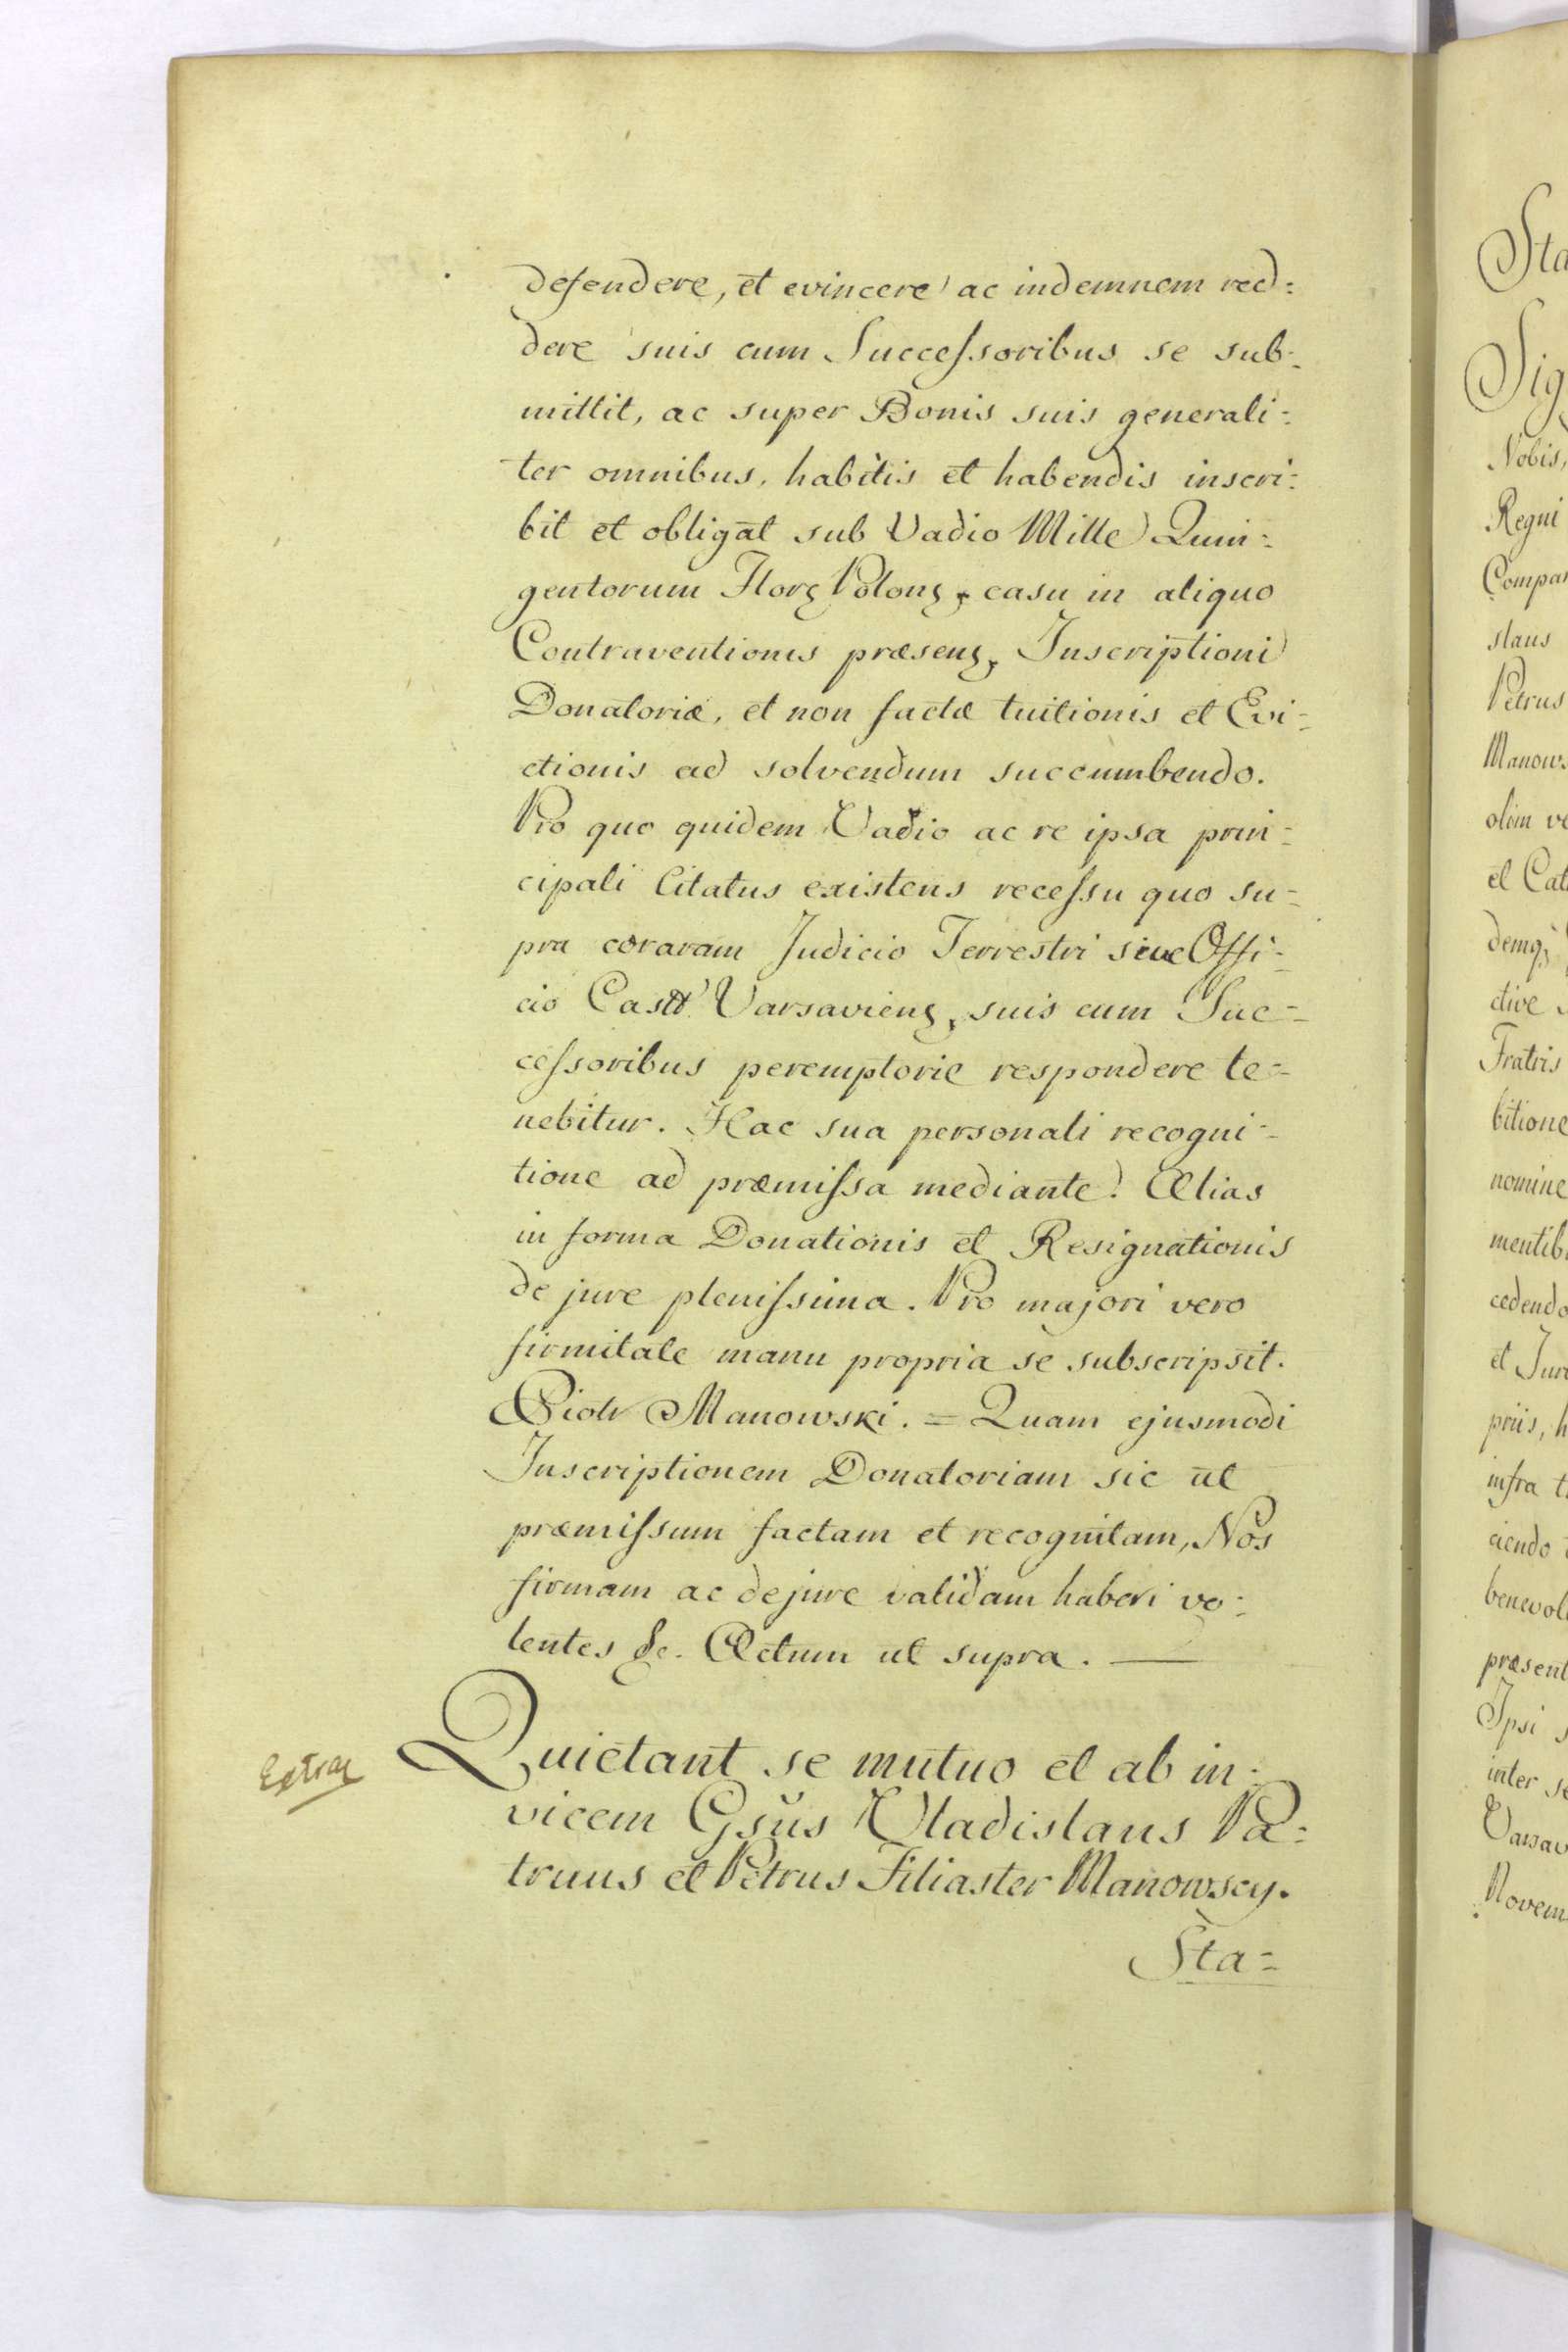 defendere, et evincere ac indemnem red=
dere suis cum Successoribus se sub=
mittit, ac super Bonis suis generali=
ter omnibus, habitis et habendis inscri=
bit et obligat sub Vadio Mille Quin=
gentorum Flor Polon casu in aliquo
Contraventionis præsen Inscriptioni
Donatoriæ, et non factæ tuitionis et Evi=
ctionis ad solvendum succumbendo.
Pro quo quidem Vadio ac re ipsa prin=
cipali Citatus existens recessu quo su=
pra coraram Judicio Terrestri sive Offi=
cio Castr Varsavien suis cum Suc=
cessoribus peremptorie respondere te=
nebitur. Hac sua personali recogni=
tione ad præmissa mediante. Alias
in forma Donationis et Resignationis
de jure plenissima. Pro majori vero
firmitate manu propria se subscripsit.
Piotr Manowski. = Quam ejusmodi
Inscriptionem Donatoriam sic ut
præmissum factam et recognitam, Nos
firmam ac de jure validam haberi vo=
lentes &c. Actum ut supra. —
Quietant se mutuo et ab in=
vicem Gsus Vladislaus Pa=
truus et Petrus Filiaster Manowscy.
Sta=
Extrax
Sta
Sig
Nobis,
Regni
Compar
slaus
Petrus
Manows
olim ve
et Cat
demq;
ctive
Fratris
bitione
nomine
mentib
cedendo
et Jur
priis, h
infra t
ciendo
benevol
præsent
Ipsi s
inter se
Varsav
Novem